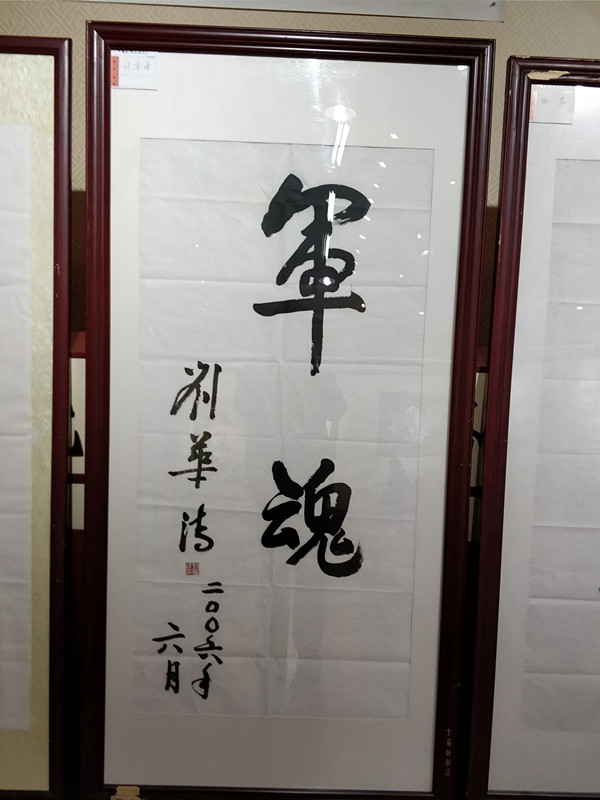 軍魂
劉華清
二〇〇六年
六月